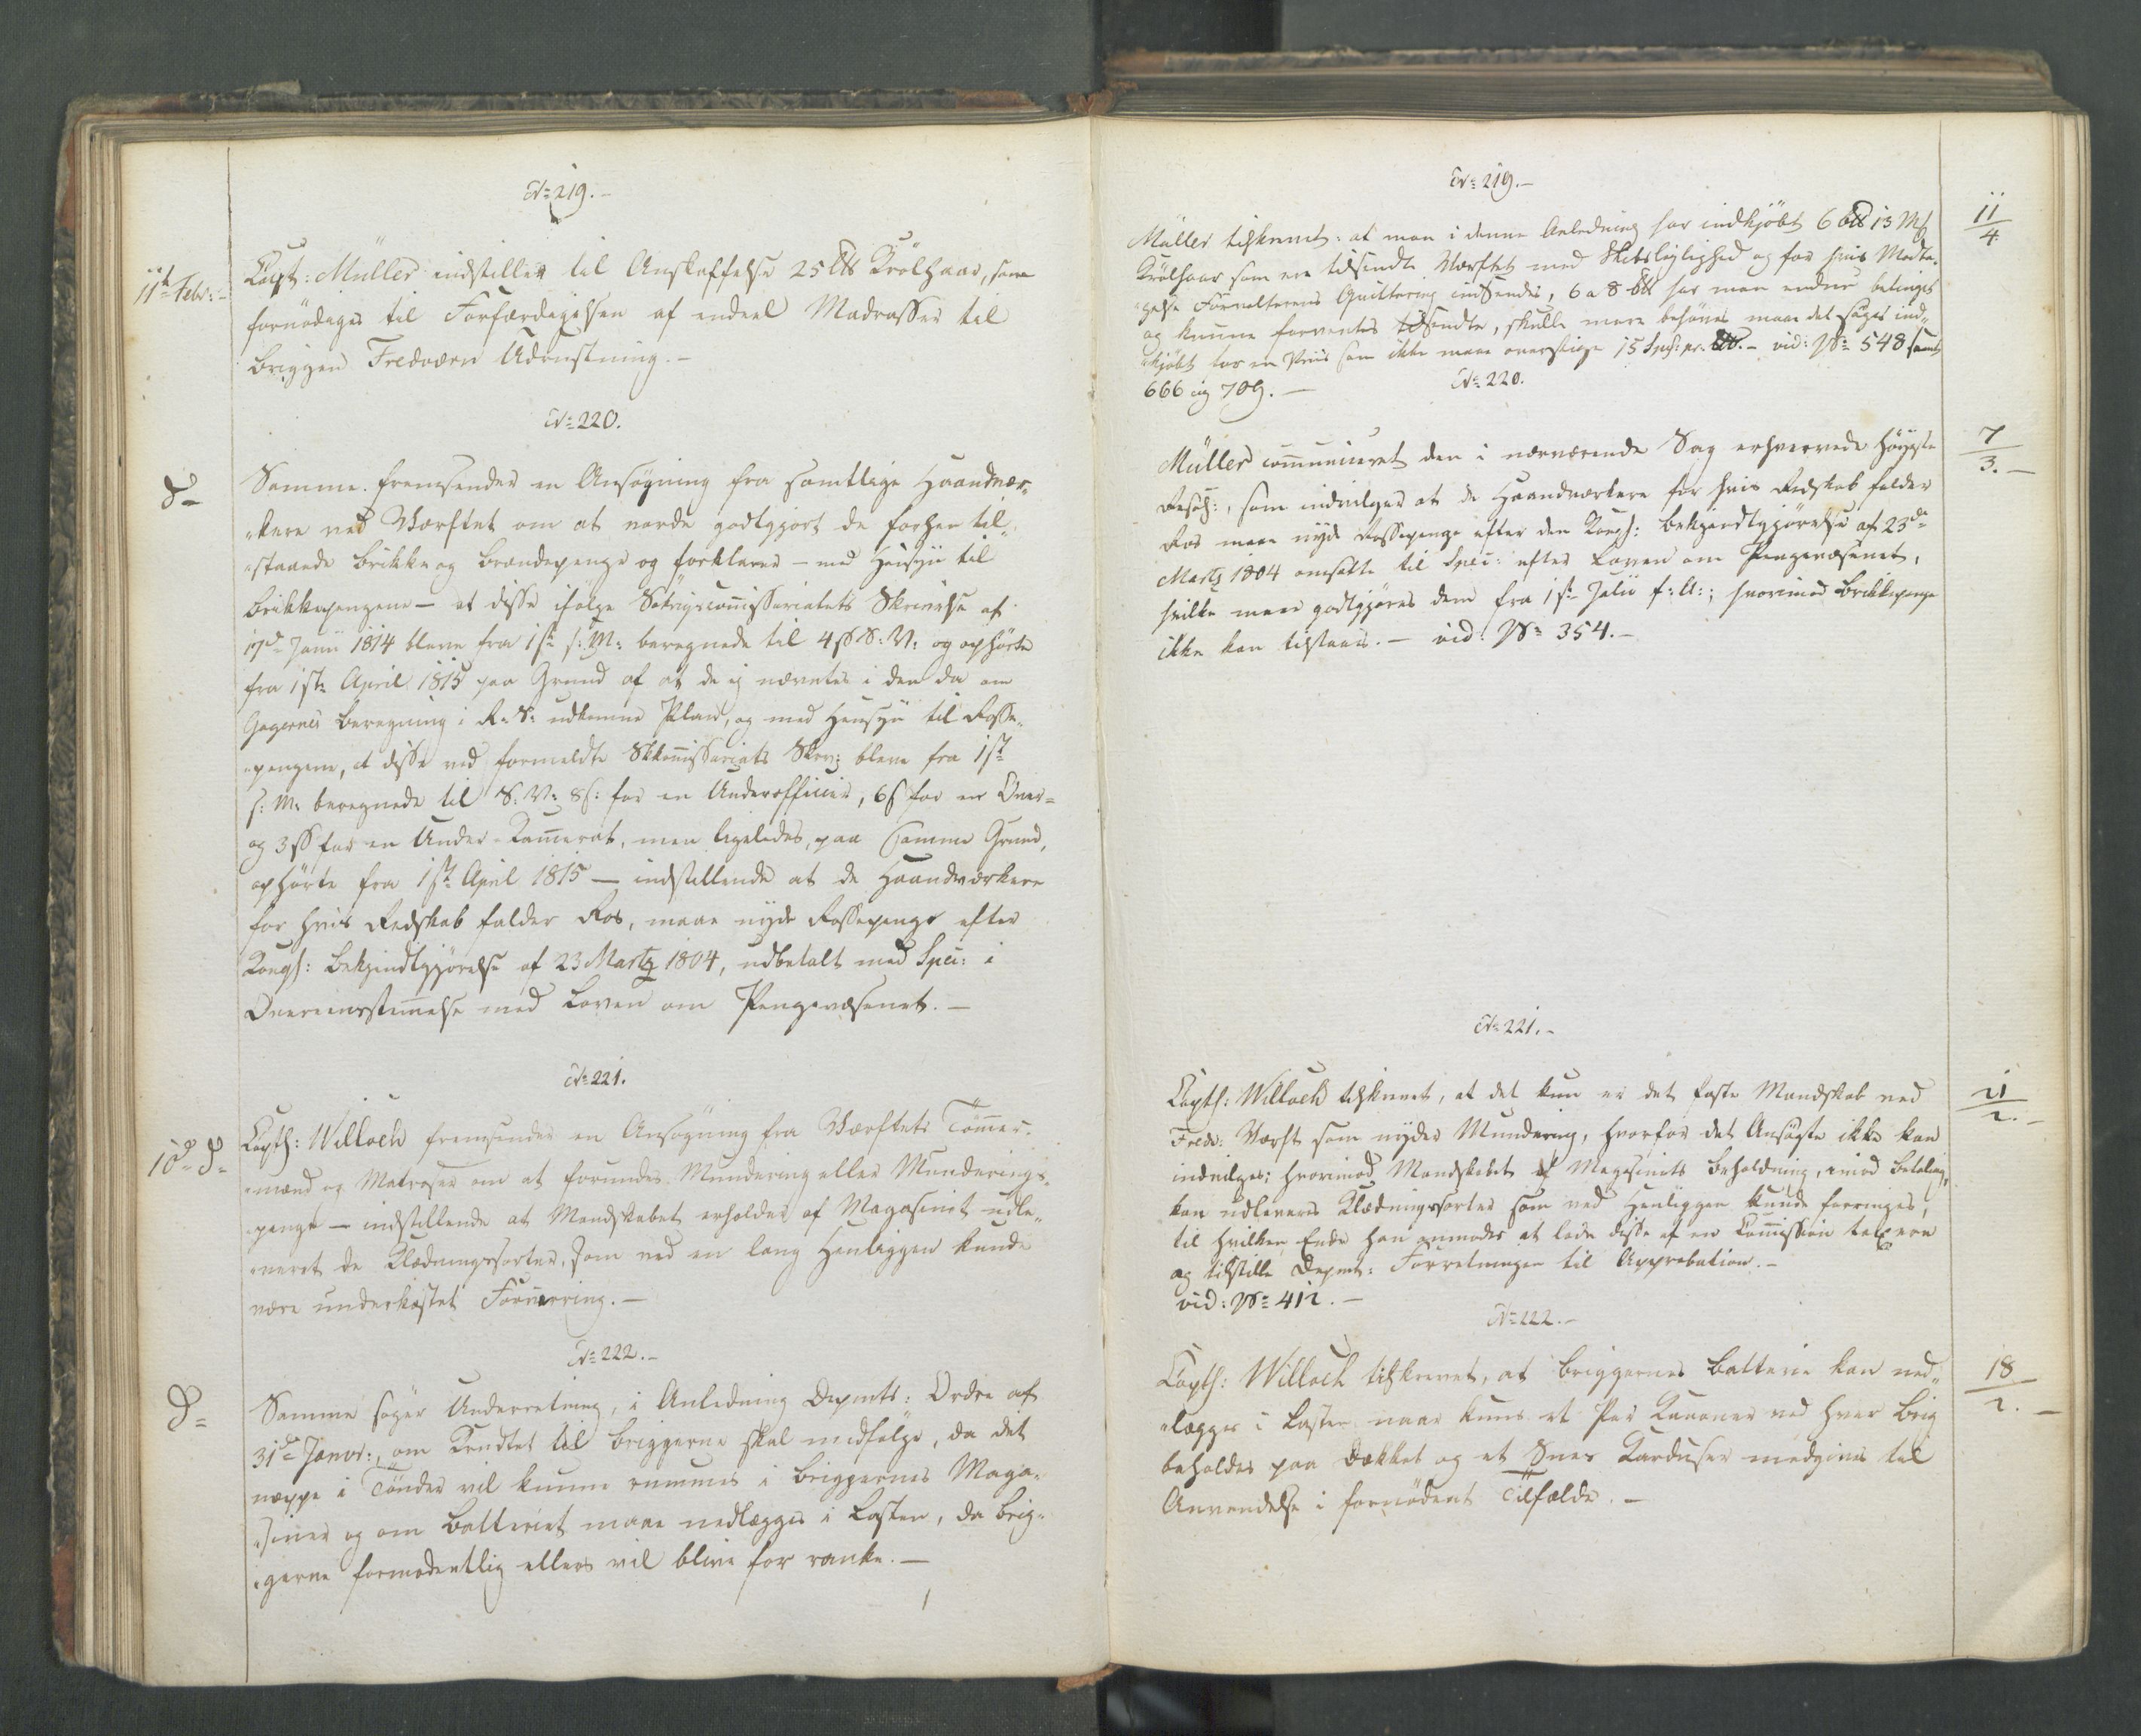 No 219.-
11te Febr:-
Capt: Müller indstiller til Anskaffelse 25 ℔ Krølhaar, som
fornødiges til Forfærdigelsen af endeel Madrasser til
Briggen Fredværn Udrustning.-
No 220.
do-
Samme fremsender en Ansøgning fra samtlige Haandvær-
"kere ved Værftet om at vorde godtgjort de forhen til-
"staaede Brikke og Brændepenge og forklarer - med Hensyn til
Brikkepengene - at disse ifølge Søkrigscommissariatets Skrivelse af
17de Junii 1814 bleve fra 1ste s: M: beregnede til 4 ß S: V: og ophørte
fra 1ste April 1815 paa Grund af at de ej nævntes i den da om
Gagernes Beregning i R: S: udkomne Plan, og med Hensyn til Rosse-
"pengene, at disse ved formeldte SKkommissariats Skriv: bleve fra 1ste
s: M: beregnede til S: V: 8 ß: for en Underofficier, 6 ß for en Over-
og 3 ß for en Under-Kammerat, men ligeledes, paa samme Grund,
ophørte fra 1ste April 1815 - indstillende at de Haandværkere
for hvis Redskab falder Ros, maae nyde Rossepenge efter
Kongl: Bekjendtgjørelse af 23 Martz 1804, udbetalt med Spec: i
Overeensstemmelse med Loven om Pengevæsenet.-
No 221.
10de do-
Capth: Willoch fremsender en Ansøgning fra Værftets Tømmer-
"mænd og Matroser om at forundes Mundering eller Munderings-
"penge - indstillende at Mandskabet erholder af Magasinet udle-
"veret de Klædningssorter, som ved en lang Henliggen kunde
være underkastet Forværring.-
No 222.-
do-
Samme søger Underretning, i Anledning Depmts: Ordre af
31de Janvr:, om Krudtet til Briggerne skal medfølge, da det
neppe i Tønder vil kunne rummes i Briggernes Maga-
"siner og om Batteriet maae nedlægges i Lasten, da Brig-
"gerne formodentlig ellers vil blive for ranke.-
No 219.-
11/4
Müller tilskrevet: at man i denne Anledning har indkjøbt 6 ℔ 13 Mk
Krølhaar som ere tilsendte Værftet med Skibsleilighed og for hvis Modta-
"gelse Forvalterens Quittering indsendes, 6 a 8 ℔ har man endnu betinget
og kunne forventes tilsendte, skulle mere behøves maae det søges ind-
"kjøbt for en Priis som ikke maae overstige 15 Spsk: pr. ℔.- vid: No 548 samt
666 og 709.-
No 220.
7/3.-
Müller communiceret den i nærværende Sag erhvervede høieste
Resol:, som indvilger at de Haandværkere for hvis Redskab falder
Ros maae nyde Rossepenge efter den Kongl: Bekjendtgjørelse af 23de
Martz 1804 omsatte til Spec: efter Loven om Pengevæsenet,
hvilke maae godtgjøres dem fra 1ste Julii f: A:; hvorimod Brikkepenge
ikke kan tilstaaes.- vid: No 354.-
No 221.-
21/2.-
Capth: Willoch tilskrevet, at det kun er det faste Mandskab ved
Fredr: Værft som nyder Mundering, hvorfor det Ansøgte ikke kan
indvilges; hvorimod Mandskabet af Magasinets Beholdning, imod Betaling,
kan udleveres Klædningssorter som ved Henliggen kunde forringes,
til hvilken Ende han anmodes at lade disse af en Commission taxere
og tilstille Depmt: Forretningen til Approbation.-
vid: No 412.-
No 222.-
18/2.-
Capth: Willoch tilskrevet, at Briggernes Batterie kan ned-
"lægges i Lasten naar kuns et Par Kanoner ved hver Brig
beholdes paa Dækket og et Snes Karduser medgives til
Anvendelse i fornødent Tilfælde.-